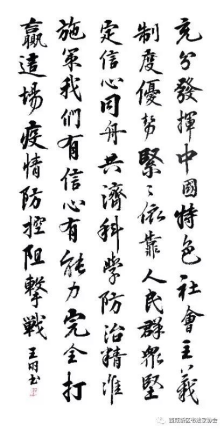 充分發揮中國特色社會主義
制度優勢緊々依靠人民群衆堅
定信心同舟共濟科學防治精准
施策我們有信心有能力完全打
贏這場疫情防控阻擊戰
王明书